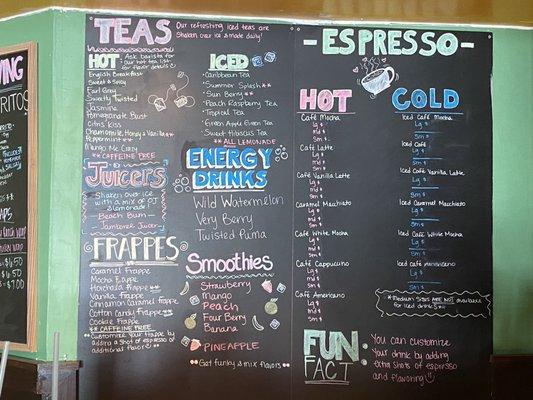 TEAS
Our refreshing iced teas are
Shaken over ice & made daily!
HOT
Ask barista for
our hot tea list for
flavor details
English Breakfast
Sweet & Spicy
Earl Grey
Sweetly Twisted
Jasmine
Pomegranate Blast
Citrus Kiss
Chamomile, Honey & Vanilla **
Peppermint **
Mango Me Crazy
** CAFFEINE FREE
ICED
Caribbean Tea
Summer Splash **
Sun Berry **
Peach Raspberry Tea
Tropical Tea
Green Apple Green Tea
Sweet Hibiscus Tea
** ALL LEMONADE
Juicers
Shaken over ice
with a mix of
& lemonade
Beach Bum
Jamboree Juice
ENERGY
DRINKS
Wild Watermelon
Very Berry
Twisted Puma
FRAPPES
Caramel Frappe
Mocha Frappe
Horchata Frappe **
Vanilla Frappe
Cinnamon Caramel Frappe
Cotton Candy Frappe **
Cookie Frappe
** CAFFEINE FREE
Customize Your Frappe by
adding a Shot of espresso or
additional flavor!
Smoothies
Strawberry
Mango
Peach
Four Berry
Banana
PINEAPPLE
Get funky & mix flavors
- ESPRESSO -
HOT
Café Mocha
Lg $
md $
Sm $
Café Latte
Lg $
md $
Sm $
Café Vanilla Latte
Lg $
md $
Sm $
Caramel Macchiato
Lg $
md $
Sm $
Café White Mocha
Lg $
md $
Sm $
Café Cappuccino
Lg $
md $
Sm $
Café Americano
Lg $
md $
Sm $
COLD
Iced Café Mocha
Lg $
Sm $
Iced Café
Lg $
Sm $
Iced Café Vanilla Latte
Lg $
Sm $
Iced Caramel Macchiato
Lg $
Sm $
Iced Café White Mocha
Lg $
Sm $
Iced Café Americano
Lg $
Sm $
*Medium Sizes ARE NOT available
for iced drinks
FUN
FACT
You can customize
Your drink by adding
extra Shots of espresso
and flavoring
$6.50
$3.50
$7.00